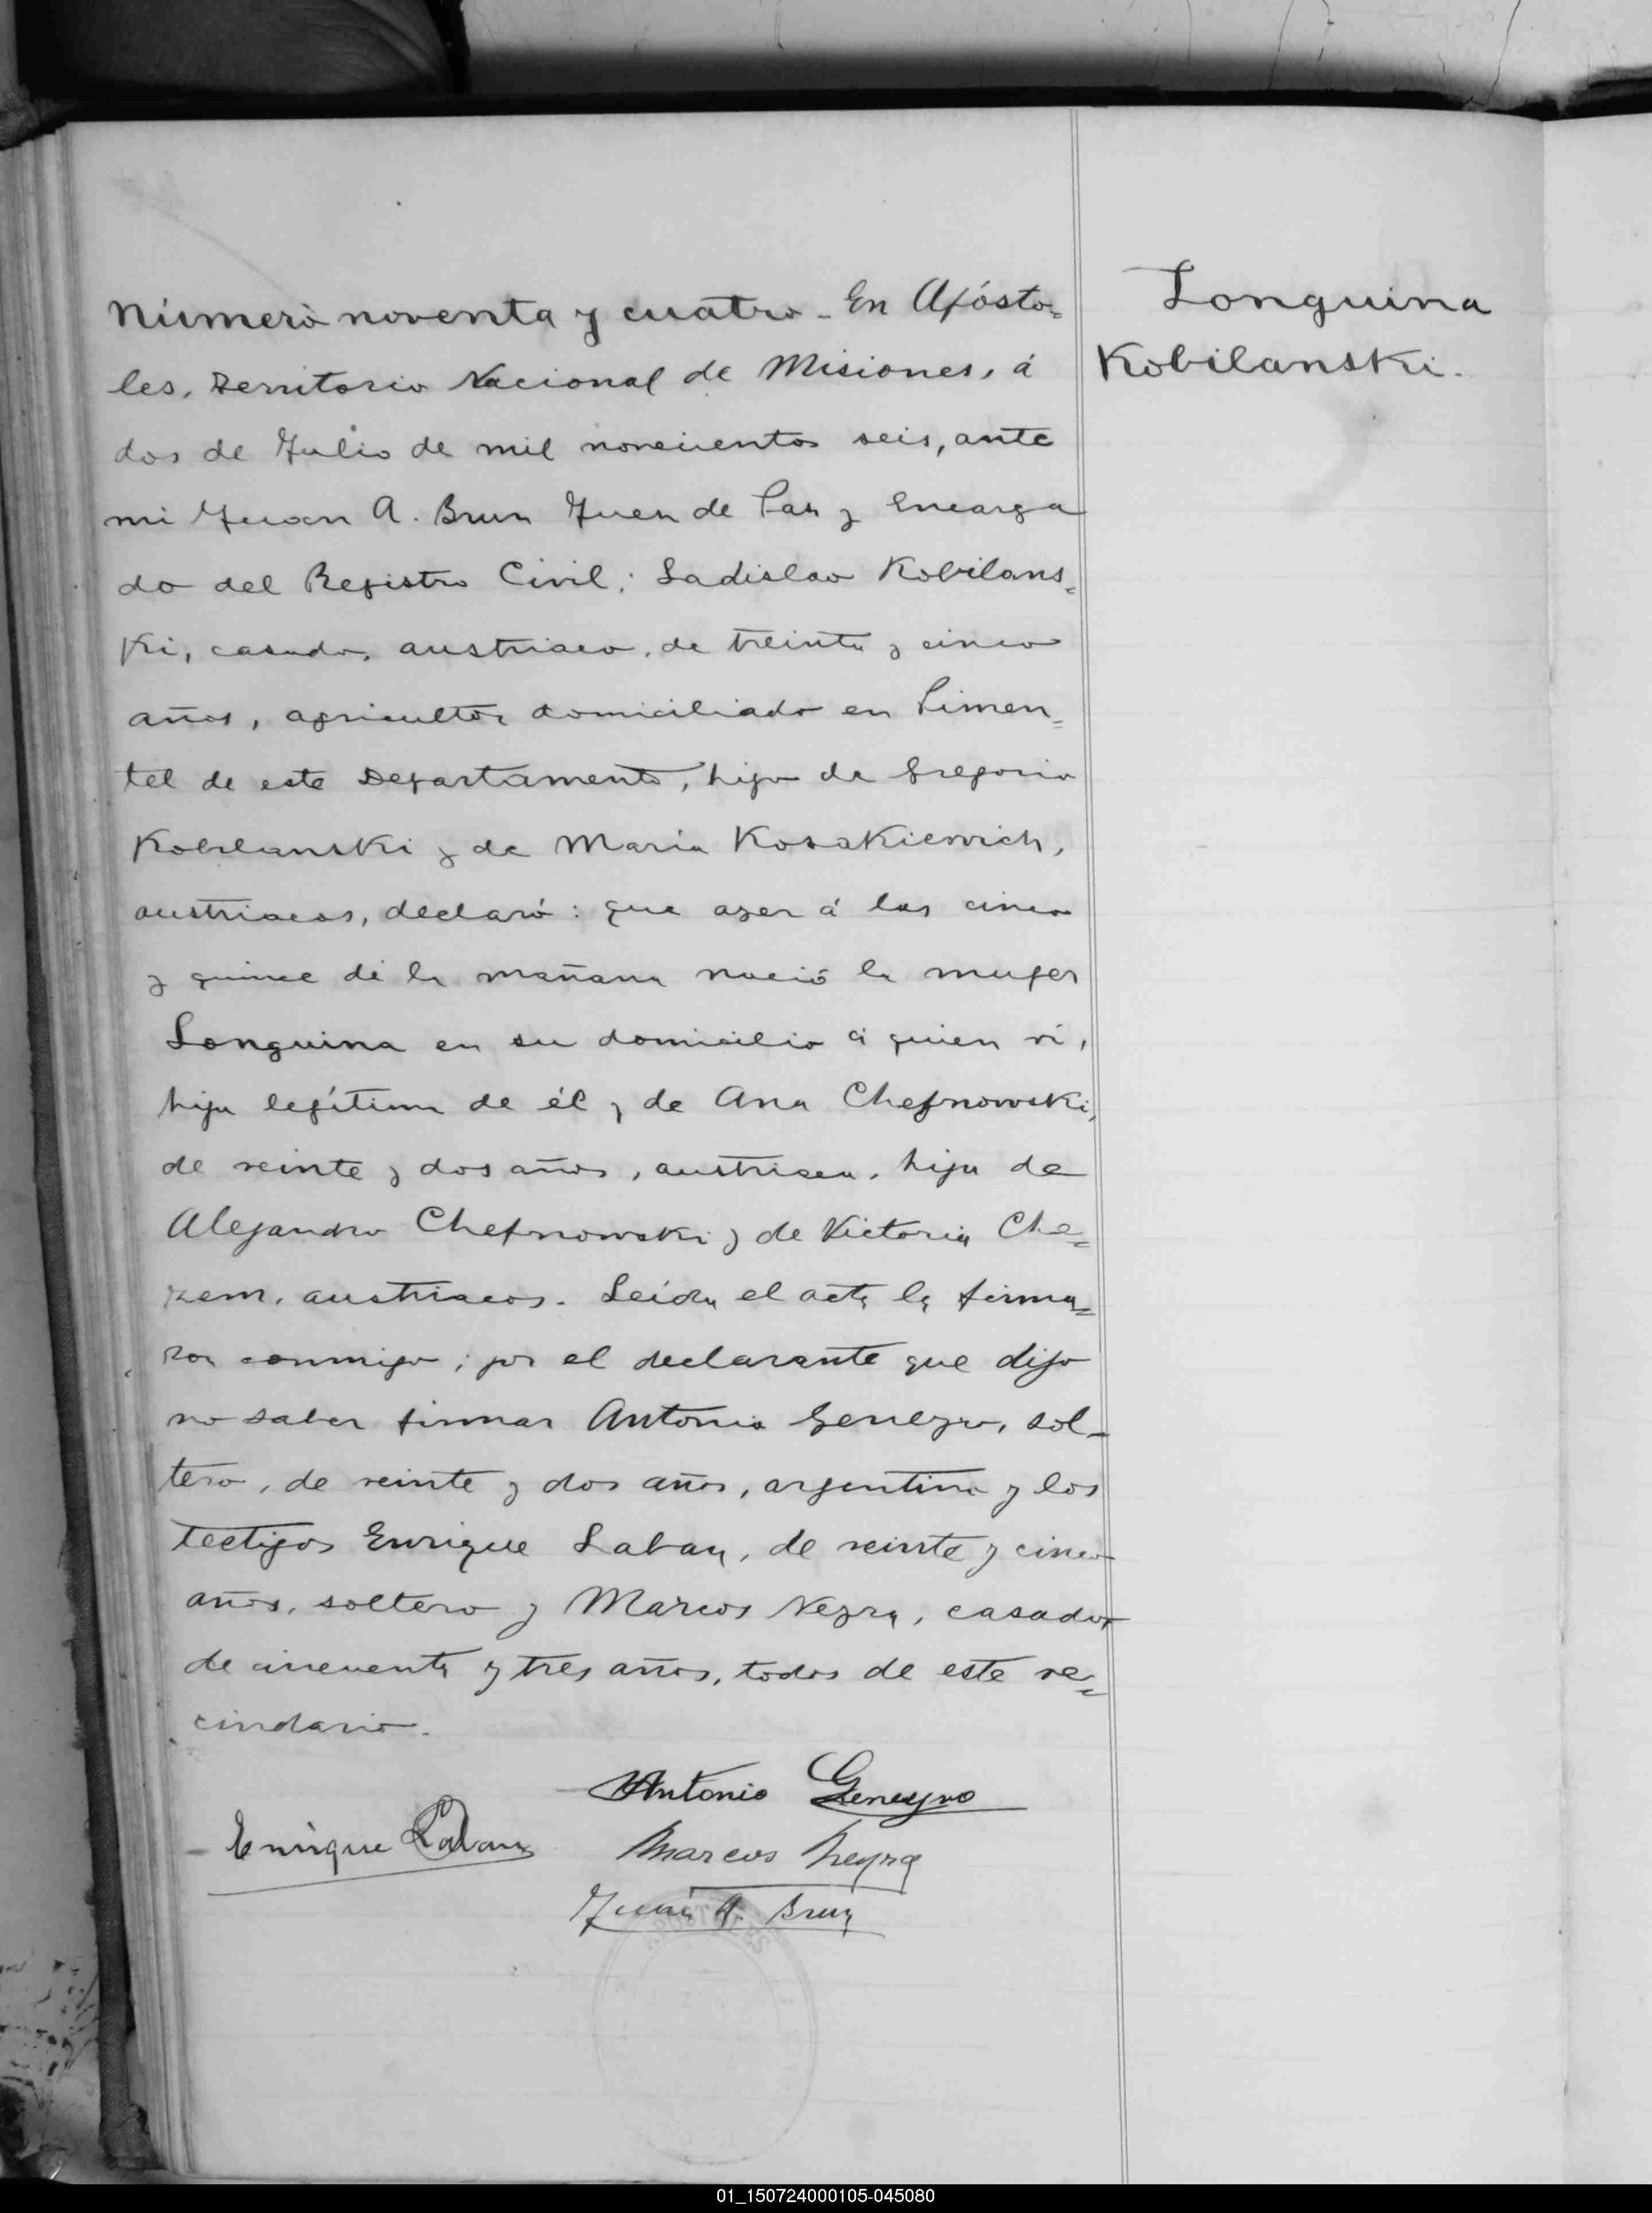 Número noventa y cuatro - En Apósto=
les, Territorio Nacional de Misiones, á
dos de Julio de mil novecientos seis, ante
mi Juan A. Brun Juez de Paz y Encarga
do del Registro Civil: Ladislao Kobilans=
ki, casado, austriaco, de treinta y cinco
años, agricultor domiciliado en Pimen=
tel de este Departamento, hijo de Gregorio
Kobilanski y de Maria Kosakiewich,
austriacos, declaró: que ayer á las cinco
y quince de la mañana nació la mujer
Longuina en su domicilio á quien vi,
hija legítima de él y de Ana Chefnowski,
de veinte y dos años, austriaca, hija de
Alejandro Chefnowski y de Victoria Che=
zem, austriacos. Leida el acta la firma=
ron conmigo; por el declarante que dijo
no saber firmar Antonio Geneyro, sol-
tero, de veinte y dos años, argentino y los
testigos Enrique Laban, de veinte y cinco
años, soltero y Marcos Neyra, casado,
de cincuenta y tres años, todos de este ve=
cindario.
Antonio Geneyro
Enrique Laban
Marcos Neyra
Juan A. Brun
Longuina
Kobilanski.
01_150724000105-045080